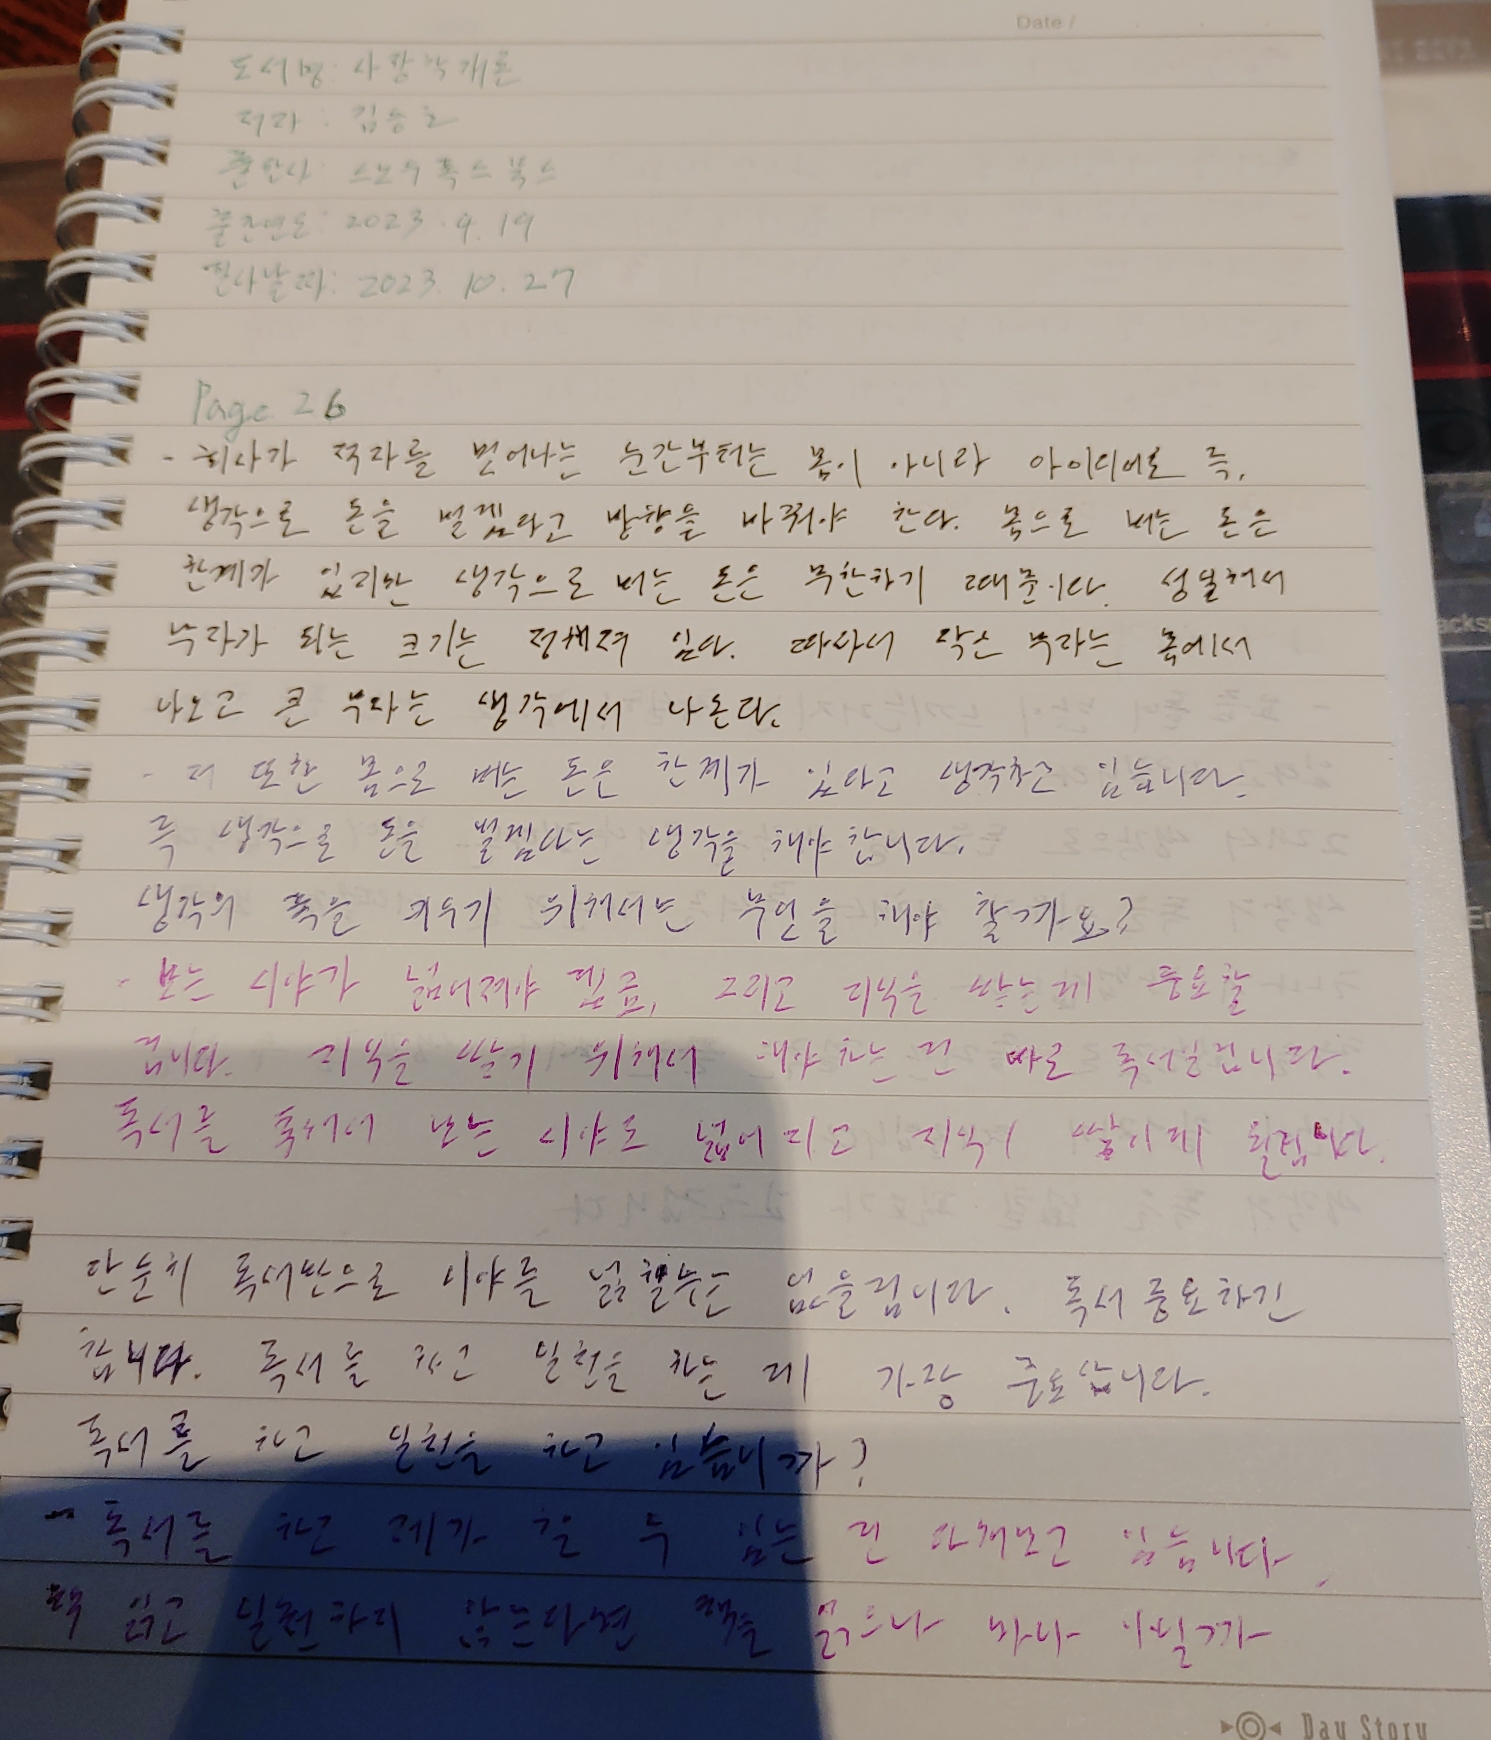 Date /
도서명: 사장학개론
저자 : 김승호
출판사: 스노우폭스북스
출간연도: 2023. 9. 19
필사날짜: 2023. 10. 27
Page 26
- 회사가 적자를 벗어나는 순간부터는 몸이 아니라 아이디어로 즉,
생각으로 돈을 벌겠다고 방향을 바꿔야 한다. 몸으로 버는 돈은
한계가 있지만 생각으로 버는 돈은 무한하기 때문이다. 성실해서
부자가 되는 크기는 정해져 있다. 따라서 작은 부자는 몸에서
나오고 큰 부자는 생각에서 나온다.
- 저 또한 몸으로 버는 돈은 한계가 있다고 생각하고 있습니다.
즉 생각으로 돈을 벌겠다는 생각을 해야 합니다.
생각의 폭을 키우기 위해서는 무엇을 해야 할까요?
- 보는 시야가 넓어져야 될 그리고 지식을 쌓는게 중요할
겁니다. 지식을 쌓기 위해서 해야하는 건 바로 독서일겁니다.
독서를 통해서 보는 시야도 넓어지고 지식이 쌓이게 될겁니다.
단순히 독서만으로 시야를 넓힐수는 없을겁니다. 독서 중요하긴
합니다. 독서를 하고 실천을 하는 게 가장 중요합니다.
독서를 하고 실천을 하고 있습니까?
- 독서를 하고 제가 할 수 있는 건 다해보고 있습니다.
책 읽고 실천하지 않는다면 책을 읽으나 마나 이닐까
Day Story